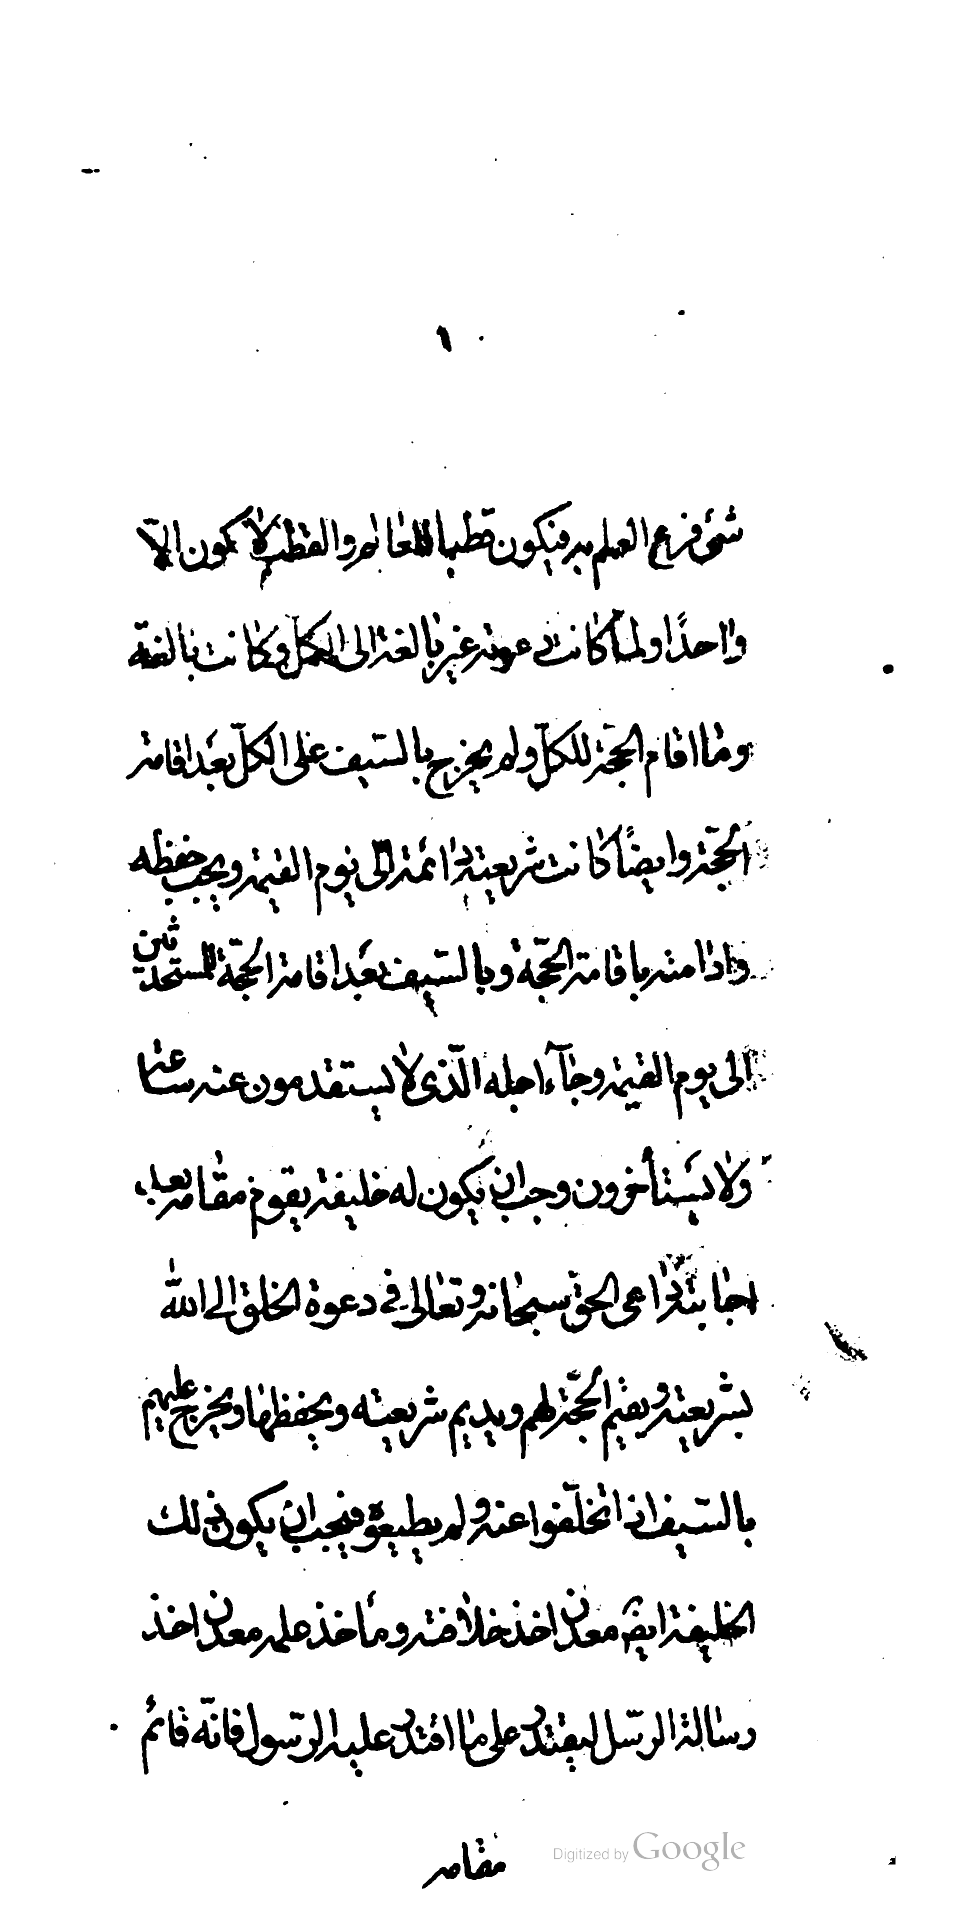 ١
شئ فرع العلم به فيكون قطبا للعالم والقطب لا يكون الا
واحدًا ولما كانت دعوته غير بالغة الى الكل وكانت بالغة
وما اقام الحجّة للكلّ ولم يخرج بالسّيف على الكلّ بعد اقامة
الحجّة وايضًا كانت شريعته دائمة الى يوم القيمة ويجب حفظه
وادامته باقامة الحجّة وبالسّيف بعد اقامة الحجّة للمستحدثين
الى يوم القيمة وجآء اجله الّذى لا يستقدمون عنه ساعة
ولا يستأخرون وجب ان يكون له خليفة يقوم مقامه بعد
اجابته داعى الحق سبحانه وتعالى فى دعوة الخلق الى الله
بشريعته ويقيم الحجّة لهم ويديم شريعته ويحفظها ويخرج عليهم
بالسّيف اذا تخلّفوا عنه ولم يطيعوه فيجب ان يكون ذلك
الخليفة ايضا معدن اخذ خلافته ومأخذ علمه معدن اخذ
رسالة الرسّل ليقتدر على ما اقتدر عليه الرسّول فانّه قائم
مقامه
Digitized by Google